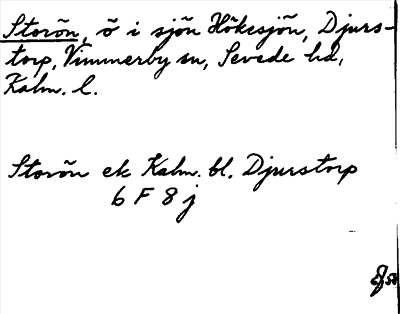 Storön, ö i sjön Hökesjön, Djurs-
torp, Vimmerby sn, Sevede hd,
Kalm. l.
Storön ek Kalm. bl. Djurstorp
6 F 8 j